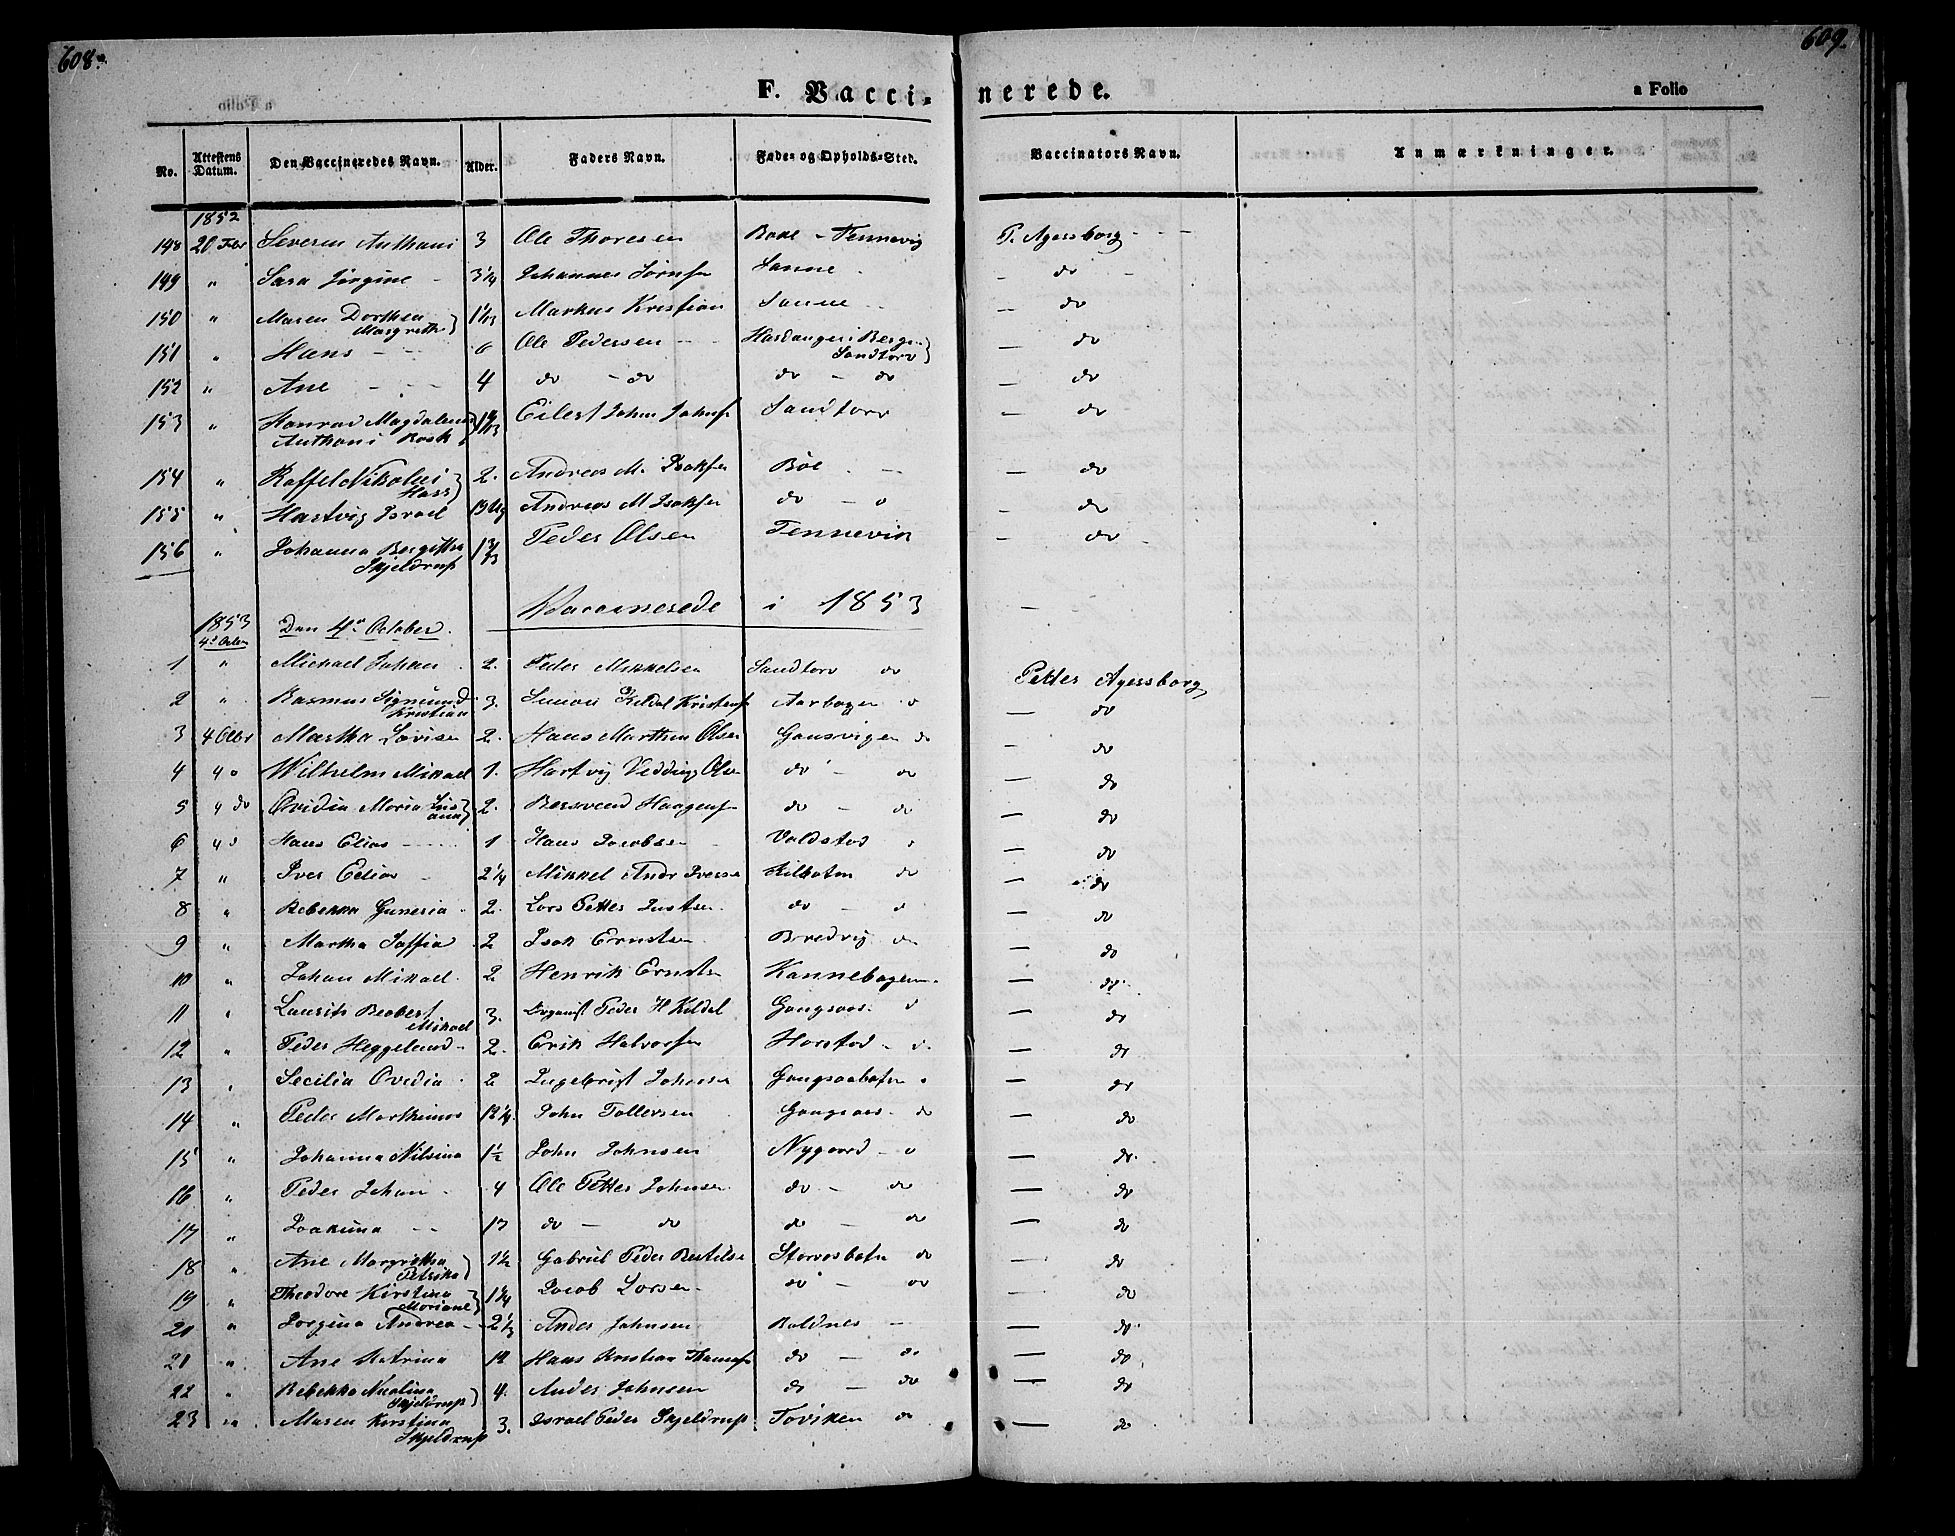 608.
609.
F. Vacci-nerede.
a Folio
No. Attestens Datum. Den Vaccineredes Navn. Alder. Faders Navn. Føde- og Opholds-Sted. Vaccinators Navn. Anmærkninger.
1852
148 20 Febr Severin Anthoni 3 Ole Thoresen Boxe - Tennevig P. Agersborg
149 " Sara Jørgine 3 1/4 Johannes Sørnsen Sanne - do
150 " Maren Dorthea Margrethe Markus Kristian Sanne - do
151 " Hans 6 Ole Pedersen Hardanger i Berge Sandtorv - do
152 " Ane 4 do - do do - do - do
153 " Magdalena Anthoni Eilert Johan Johnsen Sandtorv - do
154 " Raffel Nikolai Hass 2. Andreas M. Isaksen Bøe - do
155 " Hartvig Israel Andreas M Isaksen do - o - do
156 " Johanna Bergitha Skjeldrup Peder Olsen Tennevik - do
Vaccinerede i 1853
1853
4de Octbr Den 4de October.
1 " Michael Johan 2. Peder Mikkelsen Sandtorv do Petter Agersborg
2 " Rasmus Sigmund Kristian 3. Simon Kildal Kristens Aarbogen o - do
3 4 Octbr Martha Lovise 2. Hans Marthin Olsen Gausvigen do - do
4 4 o Wilhelm Mikael 1. Hartvig Wedding Olsen do - do - do
5 4 do Ovidia Maria Susanna 2. Bersvend Haagens do - do - do
6 4 o Hans Elias 1 Hans Jacobsen Voldstad - do
7 " Iver Edias 2 1/4 Mikkel Andr Iversen Kilboten do - do
8 " Rebekka Guneria 2. Lars Petter Justsen do - o - do
9 " Martha Saffia 2 Isak Ernstsen Bredvig do - do
10 " Johan Mikael 2 Henrik Ernstsen Kannebogen - do
11 " Laurits Mikael 3. Organist Peder H Kildal Gangsaas - do
12 " Peder Heggelund 2. Erik Halvorsen Harstad - do - do
13 " Secilia Ovedia 2 Ingebrigt Johnsen Gangsaasbotn - do
14 " Peder Marthinus John Tollersen Gangsaas - do - do
15 " Johanna Nilsina 1 1/2 John Johnsen Nygaard - o - do
16 " Peder Johan 4 Ole Petter Johnsen do - do - do
17 " Joakima 17 do - do do - do - do
18 " Ane Margretha Petrika 1 1/2 Gabriel Peder Bertilsen Storvosbotn do - do
19 " Theodore Kirstina Mariane 1 1/4 Jacob Larsen do - do - do
20 " Jorgina Andrea 2 1/3 Ander Johnsen Boldnes - - do
21 " Ane Katrina Hans Kristian Thomsen do - do - do
22 " Rebekka Skjeldrup 4. Ander Johnsen do - do - do
23 " Maren Kirstina Skjeldrup 3. Israel Peder Skjeldrup Toviken do - do